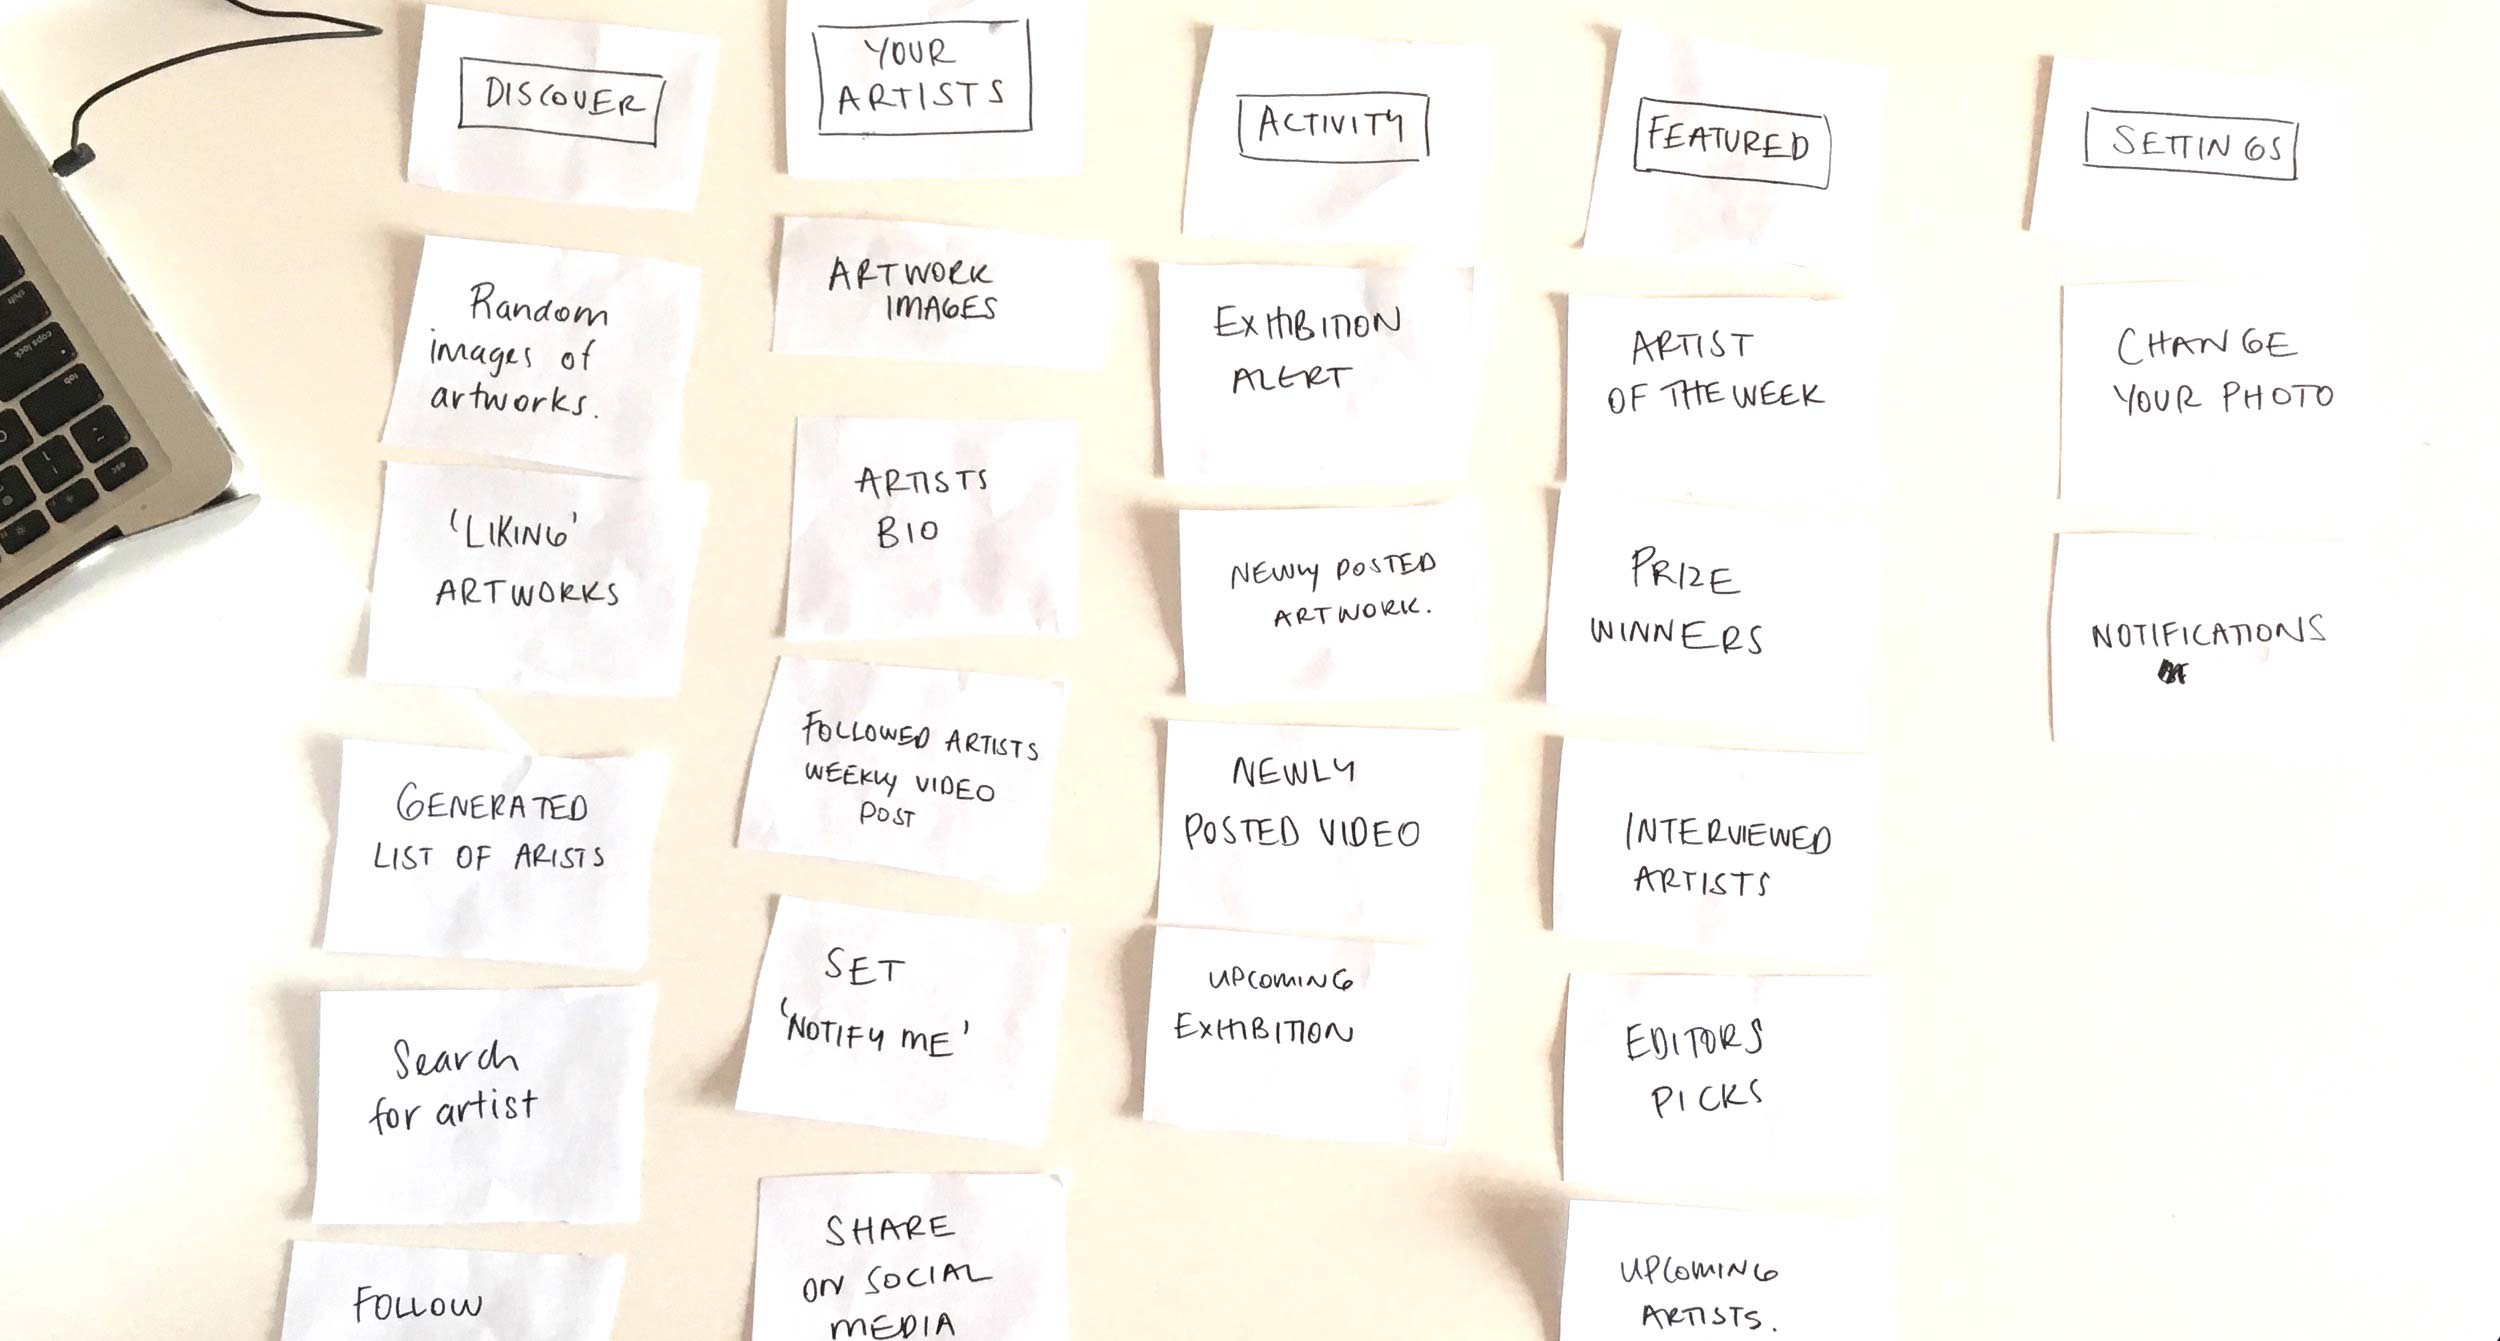 DISCOVER
Random
images of
artworks.
'LIKING'
ARTWORKS
GENERATED
LIST OF ARISTS
Search
for artist
FOLLOW
YOUR
ARTISTS
ARTWORK
IMAGES
ARTISTS
BIO
FOLLOWED ARTISTS
WEEKLY VIDEO
POST
SET
'NOTIFY ME'
SHARE
ON SOCIAL
MEDIA
ACTIVITY
EXHIBITION
ALERT
NEWLY POSTED
ARTWORK.
NEWLY
POSTED VIDEO
UPCOMING
EXHIBITION
FEATURED
ARTIST
OF THE WEEK
PRIZE
WINNERS
INTERVIEWED
ARTISTS
EDITORS
PICKS
UPCOMING
ARTISTS.
SETTINGS
CHANGE
YOUR PHOTO
NOTIFICATIONS
shift
caps lock
tab
esc